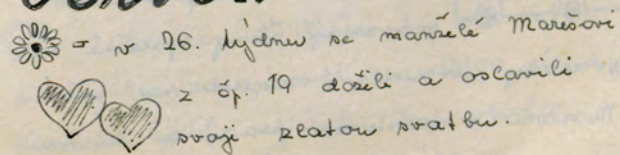 = v 26. týdnu se manželé Marešovi
z čp. 19 dožili a oslavili
svoji zlatou svatbu.